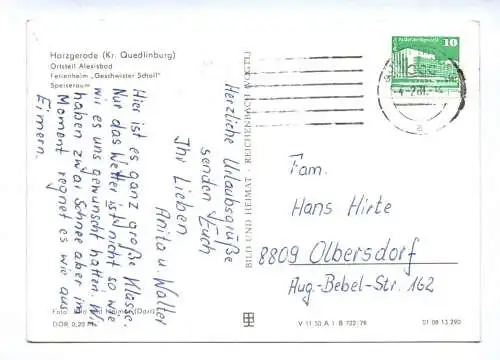 Harzgerode (Kr. Quedlinburg)
Ortsteil Alexisbad
Ferienheim „Geschwister Scholl"
Speiseraum
Herzliche Urlaubsgrüße
senden Euch
Ihr Lieben
Anita u. Walter
Hier ist es ganz große Klasse.
Nur das Wetter ist nicht so wie
wir es uns gewünscht hatten. Wir
haben zwar Schnee aber im
Moment regnet es wie aus
Eimern.
Foto: Bild und Heimat (Dörr)
DDR 0,20 M
BILD UND HEIMAT · REICHENBACH (VOGTL)
V 11 50 A 1 B 722/78
01 08 13 290
10
Fam.
Hans Hirte
8809 Olbersdorf
Aug.-Bebel-Str. 162